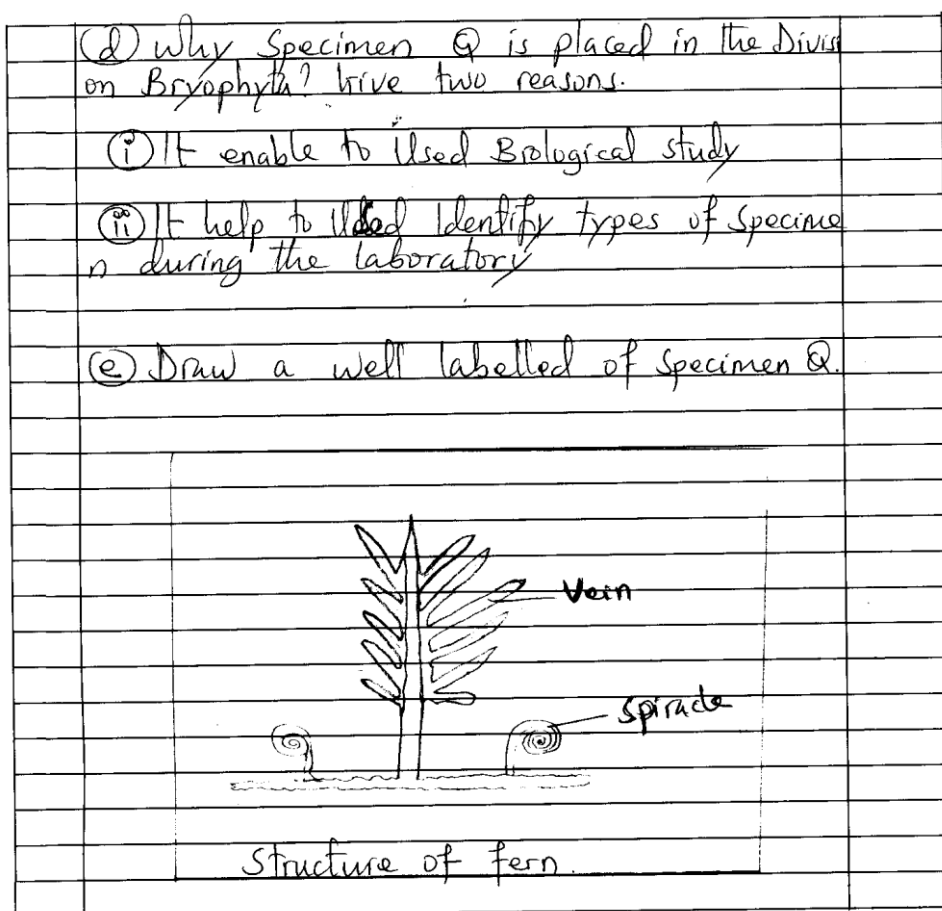 (d) Why Specimen Q is placed in the Divisi
on Bryophyta? Give two reasons.
(i) It enable to Used Biological study
(ii) It help to Used Identify types of Specime
n during the laboratory
(e) Draw a well labelled of Specimen Q.
Vein
Spirade
Structure of fern.